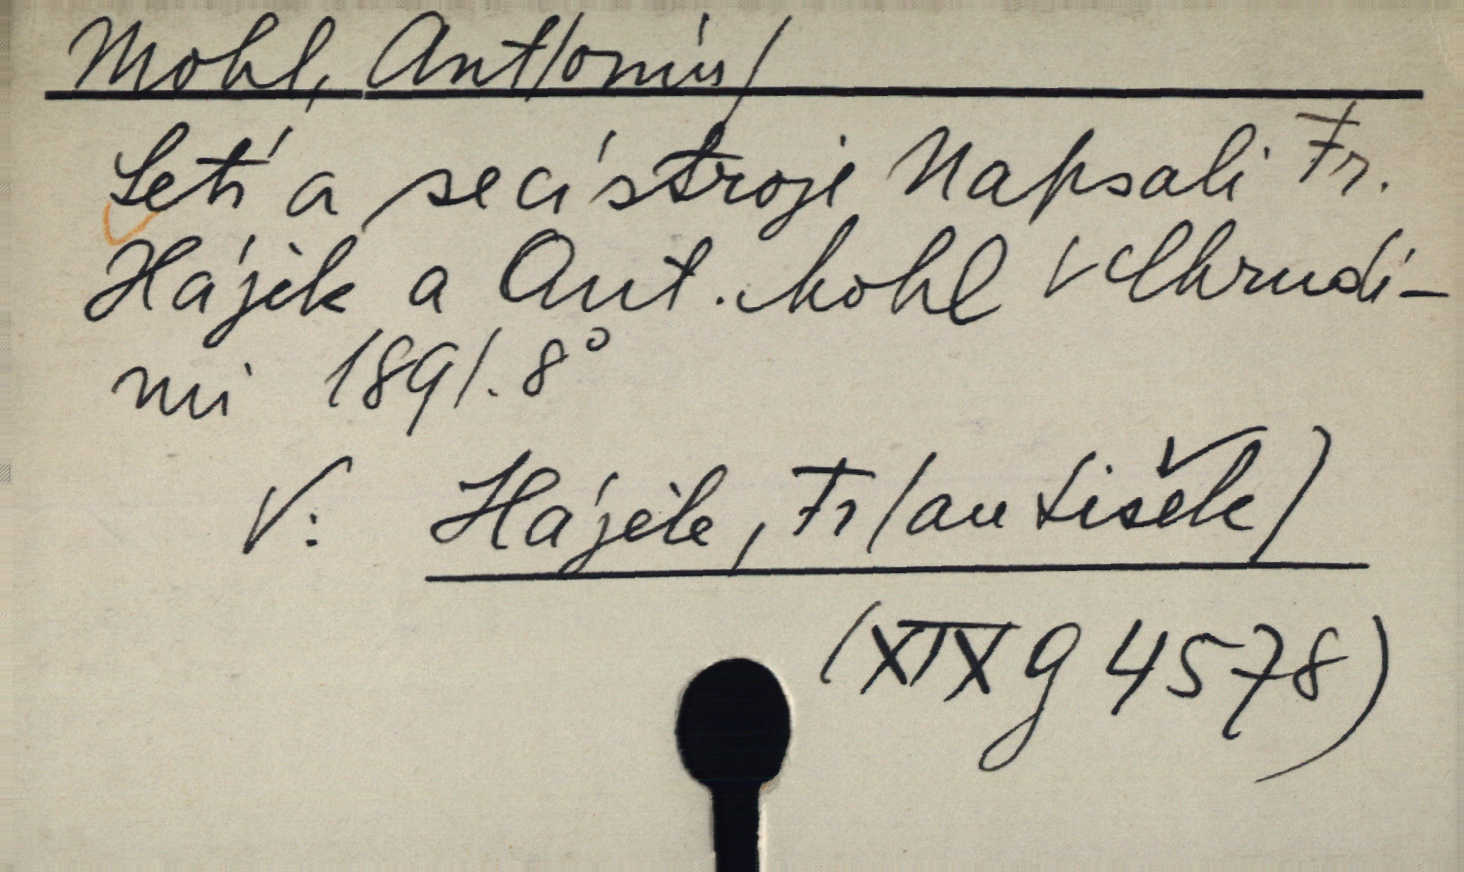 Mohl, Ant/onín/
Setí a secí stroje Napsali Fr.
Hájek a Ant. Mohl v Chrudi-
mi 1891. 8°
V: Hájek, Fr/antišek/
(XIX g 4578)